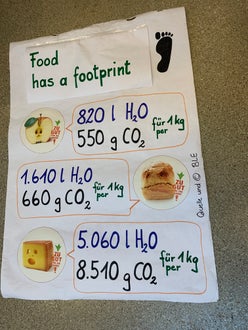 Food
has a footprint
820 l H₂O
550 g CO₂
für 1 kg
per
1.610 l H₂O
660 g CO₂
für 1 kg
per
5.060 l H₂O
8.510 g CO₂
für 1 kg
per
Quelle und © BLE